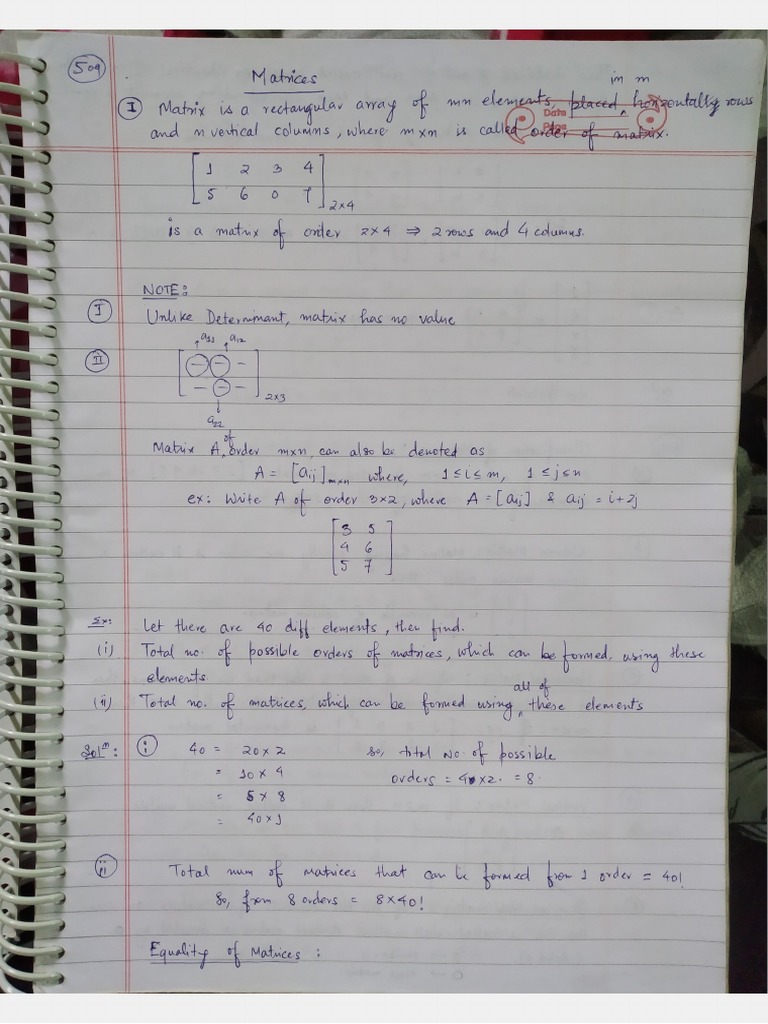 509
Matrices
in m
I Matrix is a rectangular array of mn elements, placed, horizontally rows
Date
Page
and n vertical columns, where m×n is called order of matrix.
[1 2 3 4
5 6 0 7]2×4
is a matrix of order 2×4 ⇒ 2 rows and 4 columns.
NOTE:
I Unlike Determinant, matrix has no value
a11 a12
ii [− − −
− − −]2×3
a22
of
Matrix A, order m×n, can also be denoted as
A = [aij]m×n where, 1≤i≤m, 1≤j≤n
ex: Write A of order 3×2, where A = [aij] & aij = i+2j
[3 5
4 6
5 7]
Ex: Let there are 40 diff elements, then find.
(i) Total no. of possible orders of matrices, which can be formed, using these
elements
all of
(ii) Total no. of matrices, which can be formed using, these elements
Solⁿ: i 40 = 20×2 so, total No. of possible
= 10×4 orders = 4×2. = 8.
= 5×8
= 40×1
ii Total num of matrices that can be formed from 1 order = 40!
So, from 8 orders = 8×40!
Equality of Matrices :